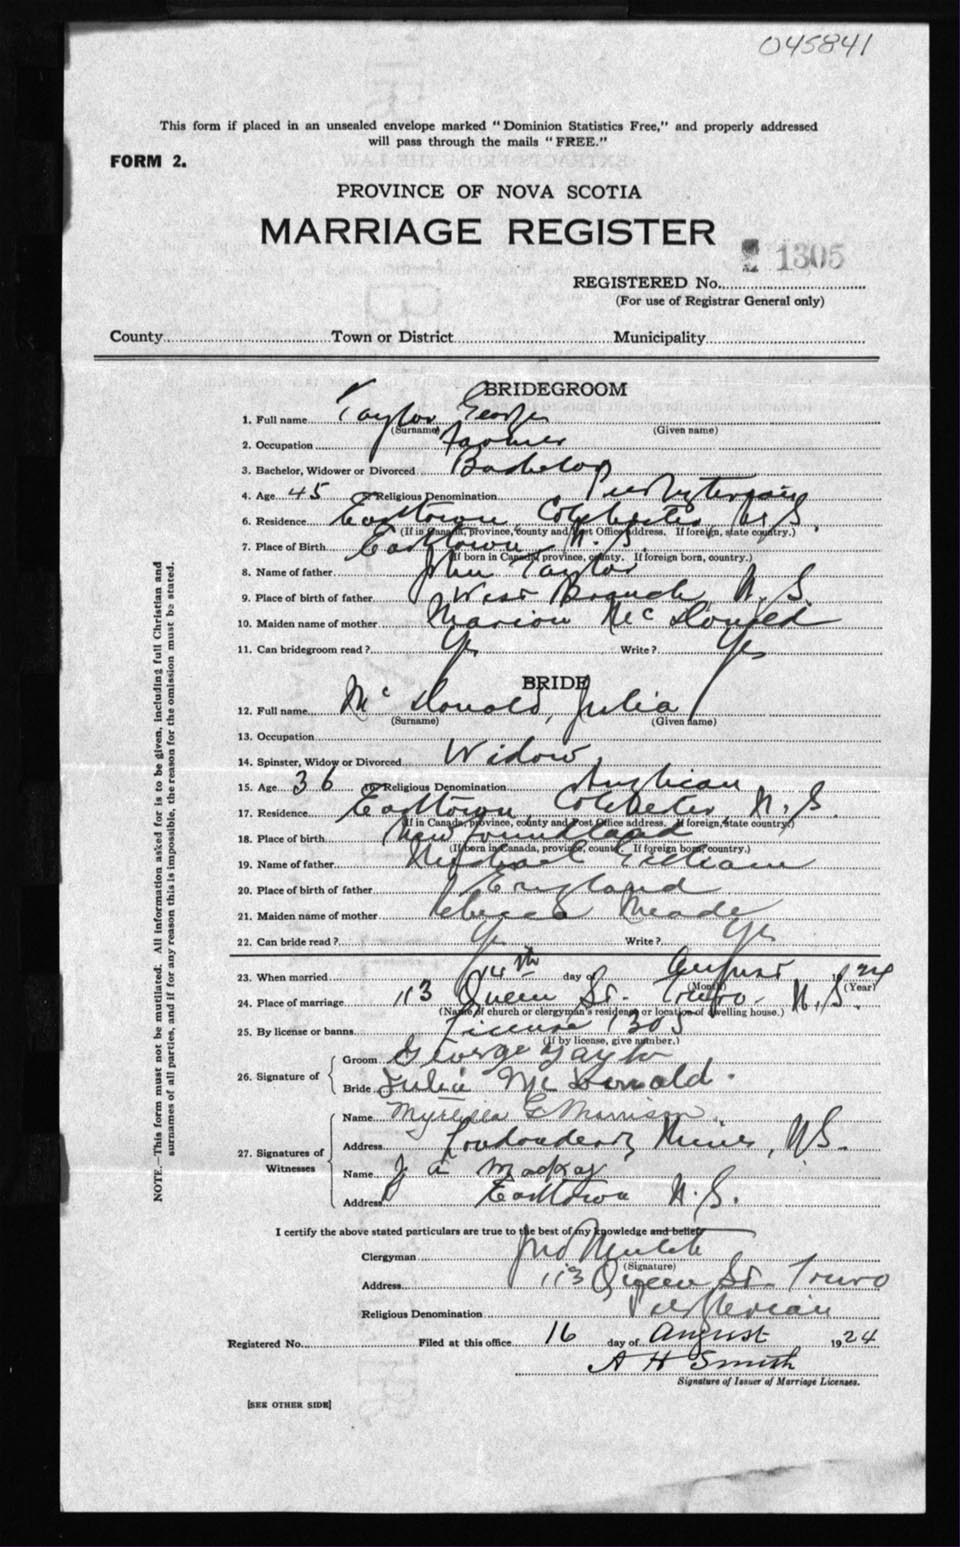 045841
This form if placed in an unsealed envelope marked "Dominion Statistics Free," and properly addressed
will pass through the mails "FREE."
FORM 2.
PROVINCE OF NOVA SCOTIA
MARRIAGE REGISTER
1305
REGISTERED No.
(For use of Registrar General only)
County Town or District Municipality
BRIDEGROOM
1. Full name Taylor George
(Surname) (Given name)
2. Occupation Farmer
3. Bachelor, Widower or Divorced Bachelor
4. Age 45 5. Religious Denomination Presbyterian
6. Residence Earltown Colchester N.S.
(If in Canada, province, county and Post Office address. If foreign, state country.)
7. Place of Birth Earltown N.S.
(If born in Canada, province, county. If foreign born, country.)
8. Name of father John Taylor
9. Place of birth of father West Branch N.S.
10. Maiden name of mother Marion McDonald
11. Can bridegroom read? Yes Write? Yes
BRIDE
12. Full name McDonald, Julia
(Surname) (Given name)
13. Occupation
14. Spinster, Widow or Divorced Widow
15. Age 36 16. Religious Denomination Anglican
17. Residence Earltown Colchester N.S.
(If in Canada, province, county and Post Office address. If foreign, state country.)
18. Place of birth New Foundland
(If born in Canada, province, county. If foreign born, country.)
19. Name of father Michael Gilliam
20. Place of birth of father England
21. Maiden name of mother Rebecca Meade
22. Can bride read? Yes Write? Yes
23. When married 14th day of August 1924
(Month) (Year)
24. Place of marriage 113 Queen St. Truro. N.S.
(Name of church or clergyman's residence or location of dwelling house.)
25. By license or banns License 1305
(If by license, give number.)
26. Signature of Groom George Taylor
Bride Julia McDonald.
27. Signatures of Witnesses Name E Morrison
Address Londonderry Mines, N.S.
Name J A MacKay
Address Earltown N.S.
I certify the above stated particulars are true to the best of my knowledge and belief.
Clergyman Jno
(Signature)
Address 113 Queen St. Truro
Religious Denomination Presbyterian
Registered No. Filed at this office 16 day of August 1924
A H Smith
Signature of Issuer of Marriage Licenses.
[SEE OTHER SIDE]
NOTE.—This form must not be mutilated. All information asked for is to be given, including full Christian and
surnames of all parties, and if for any reason this is impossible, the reason for the omission must be stated.